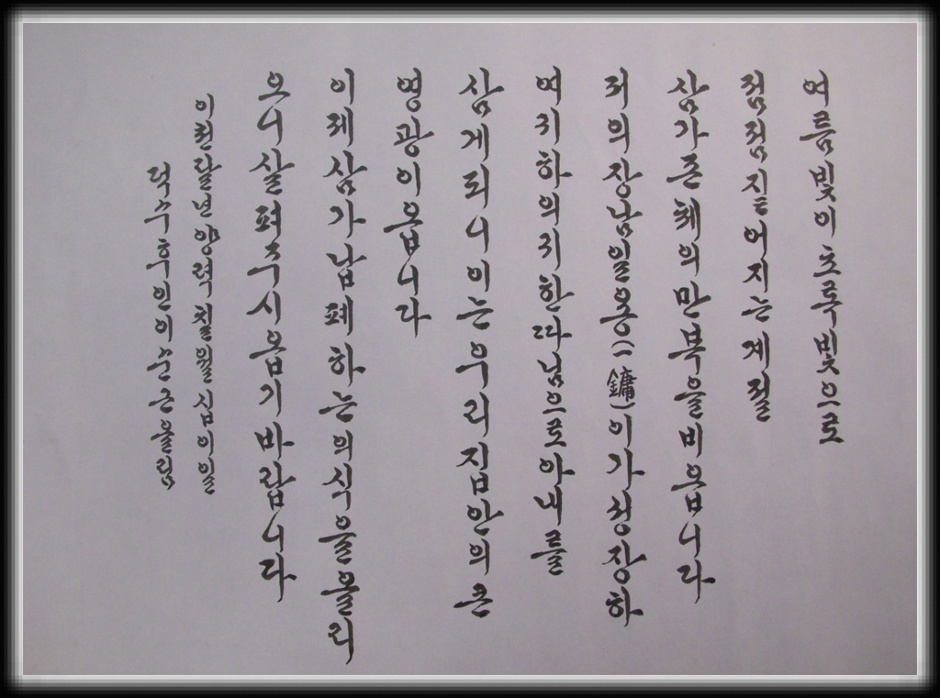 여름빛이초록빛으로
점점짙어지는계절
삼가존체의만복을비옵니다
저의장남일용(鏞)이가성장하
여귀하의귀한따님으로아내를
삼게되니이는우리집안의큰
영광이옵니다
이제삼가납폐하는의식을올리
오니살펴주시옵기바랍니다
이천팔년양력칠월십이일
덕수후인이순근올림